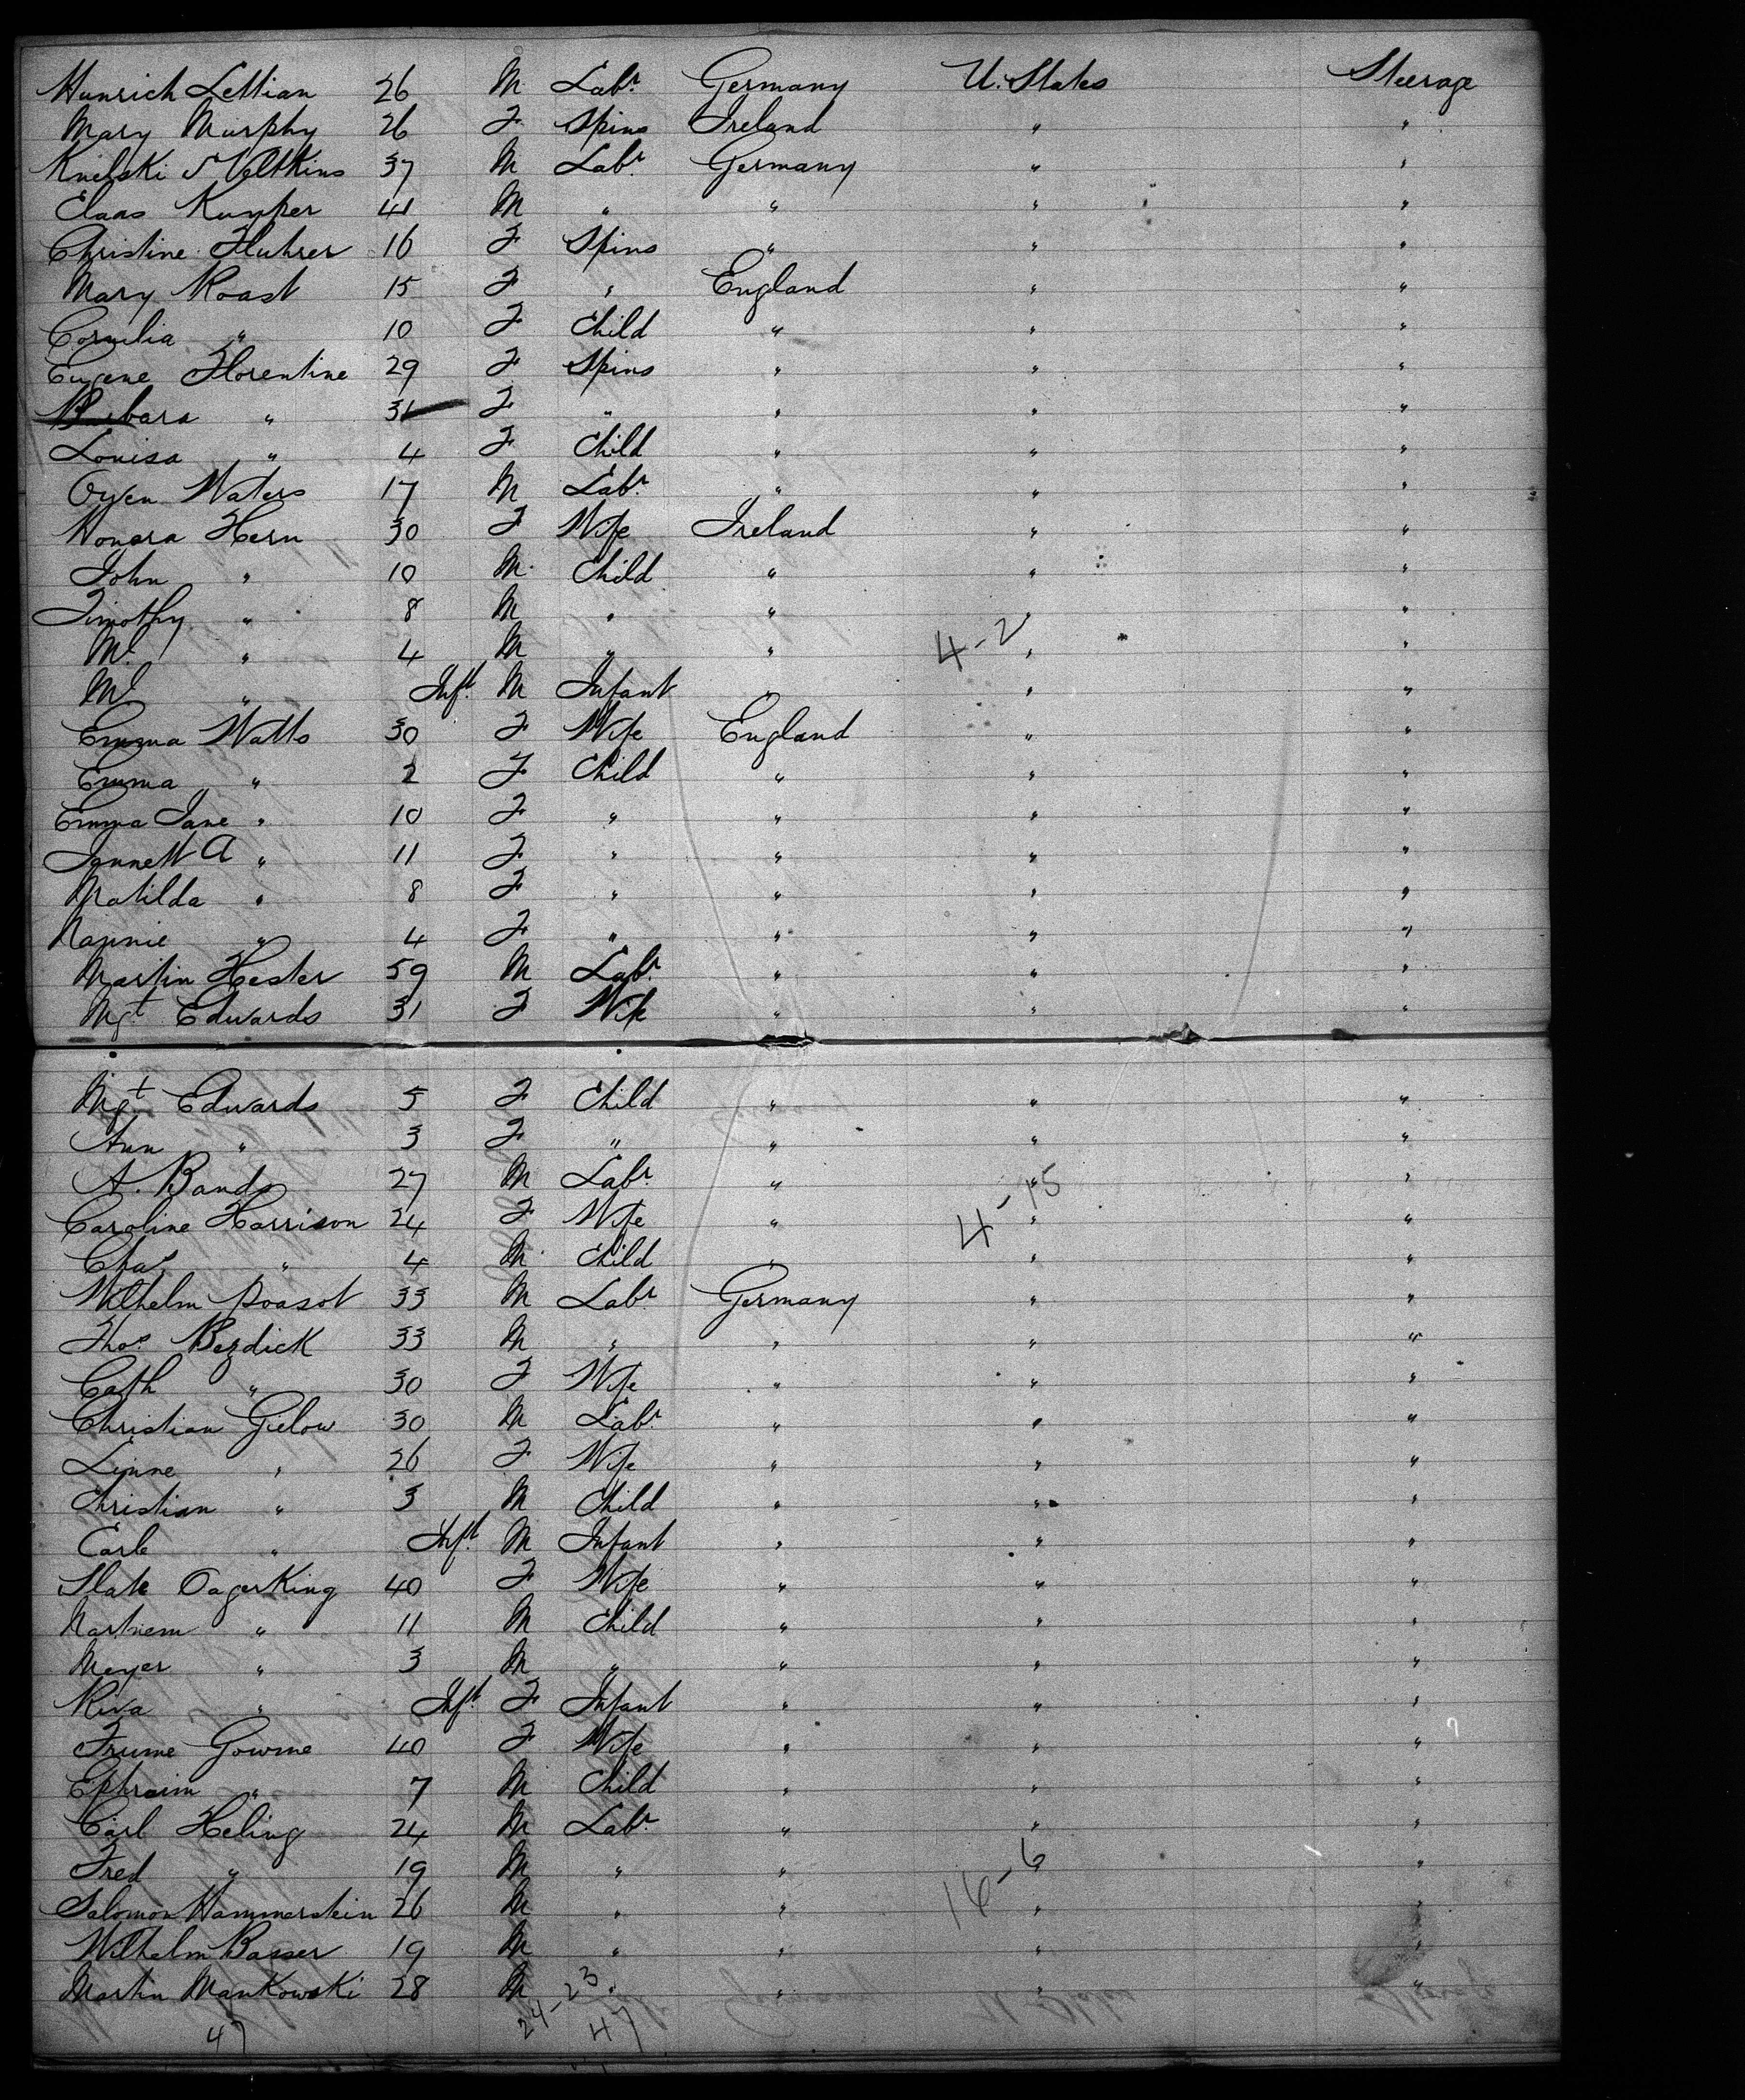 Hunrich Lettian 26 M Labr. Germany U. States Steerage
Mary Murphy 26 F Spins Ireland " "
Knelski 37 M Labr. Germany " "
Claas Kuyper 41 M " " " "
Christine Fluhrer 16 F Spins " " "
Mary Roast 15 F " England " "
Cornelia " 10 F Child " " "
Eugene Florentine 29 F Spins " " "
Barbara " 31 F " " " "
Louisa " 4 F Child " " "
Owen Waters 17 M Labr. " " "
Honora Hern 30 F Wife Ireland " "
John " 10 M Child " " "
Timothy " 8 M " " " "
M. " 4 M " " 4-2 " "
Ml. " Inft. M Infant " " "
Emma Watts 30 F Wife England " "
Emma " 2 F Child " " "
Emma Jane " 10 F " " " "
Jannett A " 11 F " " " "
Matilda " 8 F " " " "
Nannie " 4 F " " " "
Martin Hester 59 M Labr. " " "
Mgt. Edwards 31 F Wife " " "
Mgt. Edwards 5 F Child " " "
Ann " 3 F " " " "
A. Bands 27 M Labr. " " "
Caroline Harrison 24 F Wife " 4-15 " "
Chas. " 4 M Child " " "
Wilhelm Poasot 33 M Labr. Germany " "
Thos. Berdick 33 M " " " "
Cath " 30 F Wife " " "
Christian Gielow 30 M Labr. " " "
Linne " 26 F Wife " " "
Christian " 3 M Child " " "
Earle " Inft. M Infant " " "
Slate OagerKing 40 F Wife " " "
Nartnem " 11 M Child " " "
Meyer " 3 M " " " "
Riva " Inft. F Infant " " "
Frume Gowme 40 F Wife " " "
Ephraim " 7 M Child " " "
Carl Heling 24 M Labr. " " "
Fred " 19 M " " " "
Salomon Hammerstein 26 M " " 16-6 " "
Wilhelm Basser 19 M " " " "
Martin Mankowski 28 M " " " "
47 24-23 47